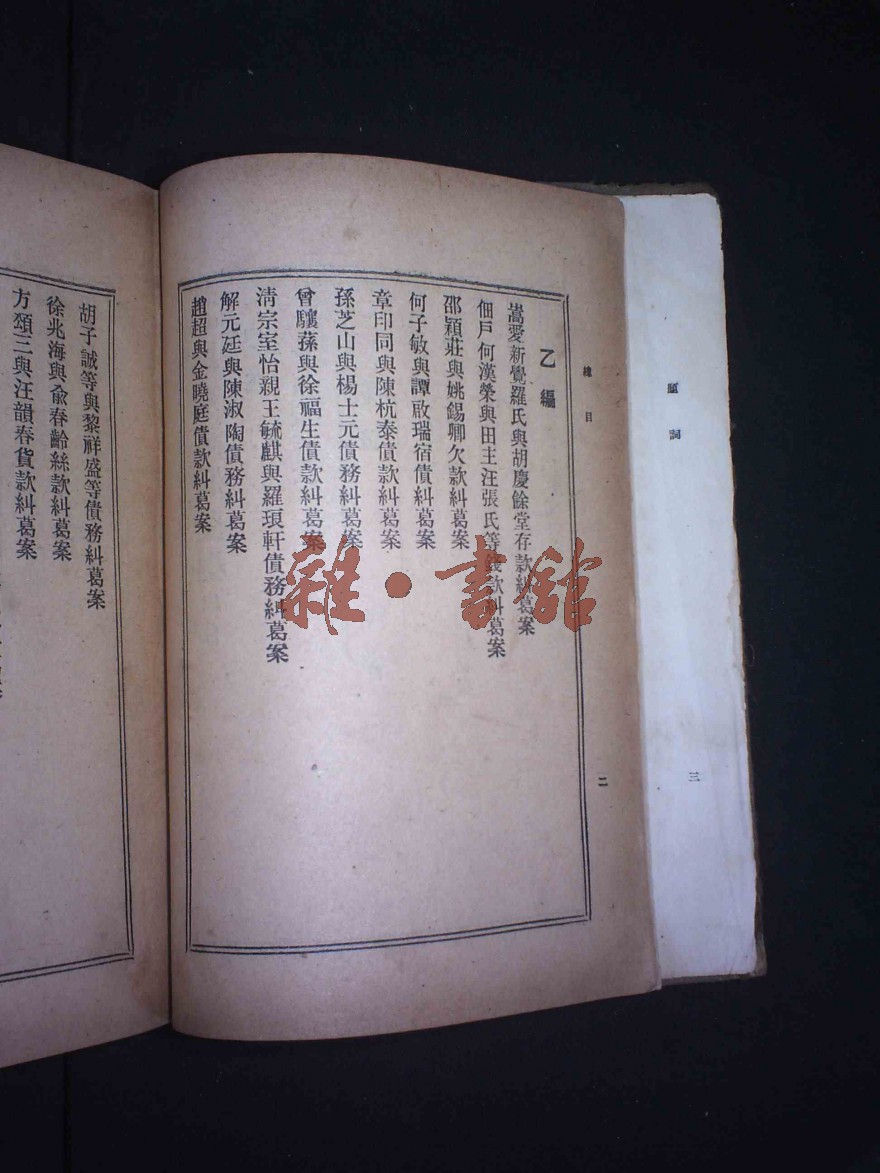 題詞
三
總目
二
乙編
嵩愛新覺羅氏與胡慶餘堂存款糾葛案
佃戶何漢榮與田主汪張氏等錢款糾葛案
邵穎莊與姚錫卿欠款糾葛案
何子敏與譚啟瑞宿債糾葛案
章印同與陳杭泰債款糾葛案
孫芝山與楊士元債務糾葛案
曾驤蓀與徐福生債款糾葛案
清宗室怡親王毓麒與羅瑔軒債務糾葛案
解元廷與陳淑陶債務糾葛案
趙超與金曉庭債款糾葛案
胡子誠等與黎祥盛等債務糾葛案
徐兆海與俞春齡絲款糾葛案
方頌三與汪韻春貨款糾葛案
雜·書館